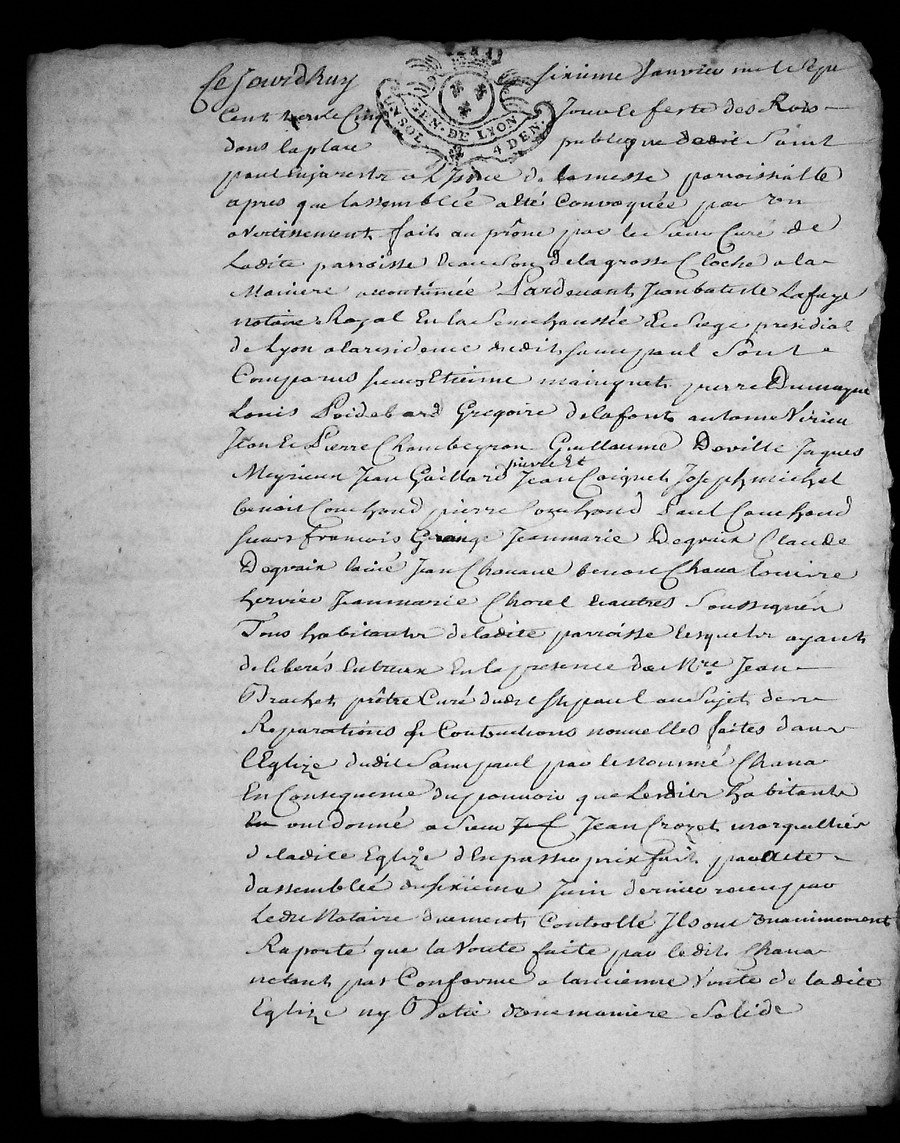 Ce Jourdhuy sixieme Janvier mil sept
Cent trente Cinq Jour le feste des Rois
dans la place publique dudit Saint
paul En jarestz a L'Issue de la messe parroissialle
apres que lassemblée a Eté Convoquée par un
avertissement fait au prône par le Sieur Curé de
Ladite parroisse Et au Son de la grosse Cloche a la
Maniere accoutumée Pardevant Jean batiste Lafaye
notaire Royal En la Senechaussée Et Siege presidial
de Lyon a la residence dudit saint paul Sont
Comparus sieurs Etienne mainguet pierre Dumayne
Louis Poidebard Gregoire delafont antoine Virieu
Jean Et Pierre Chambeyron Guillaume Deville Jaques
Meyrieux Jean Gaillard pierre Et Jean Coignet Joseph michel
benoit Couchoud pierre Couchoud Paul Couchoud
sieurs francois Grange Jeanmarie Degraix Claude
Degraix lainé Jean Chavane benoit Chava
hervier Jeanmarie Chorel Et autres Soussignés
Tous habitants de ladite parroisse lesquels ayant
deliberés Entreux En la presence de Mre. Jean
Brachet prêtre Curé dudit St paul au Sujet des
Reparations & Contructions nouvelles faites dans
l'Eglize dudit Saint paul par le nommé Chana
En Consequence du pouvoir que Lesdits habitants
En ont donné a Sieur Jean Crozet marguillier
de ladite Eglize d'En passer prix fait par acte
d'assemblée du sixieme Juin dernier receu par
Ledit Notaire duement Controllé Ils ont unanimement
Raporté que la Voute faite par ledit Chana
n'etant pas Conforme a l'ancienne Voute de ladite
Eglize ny Batie d'une maniere Solide
GEN. DE LYON
UN SOL 4 DEN.